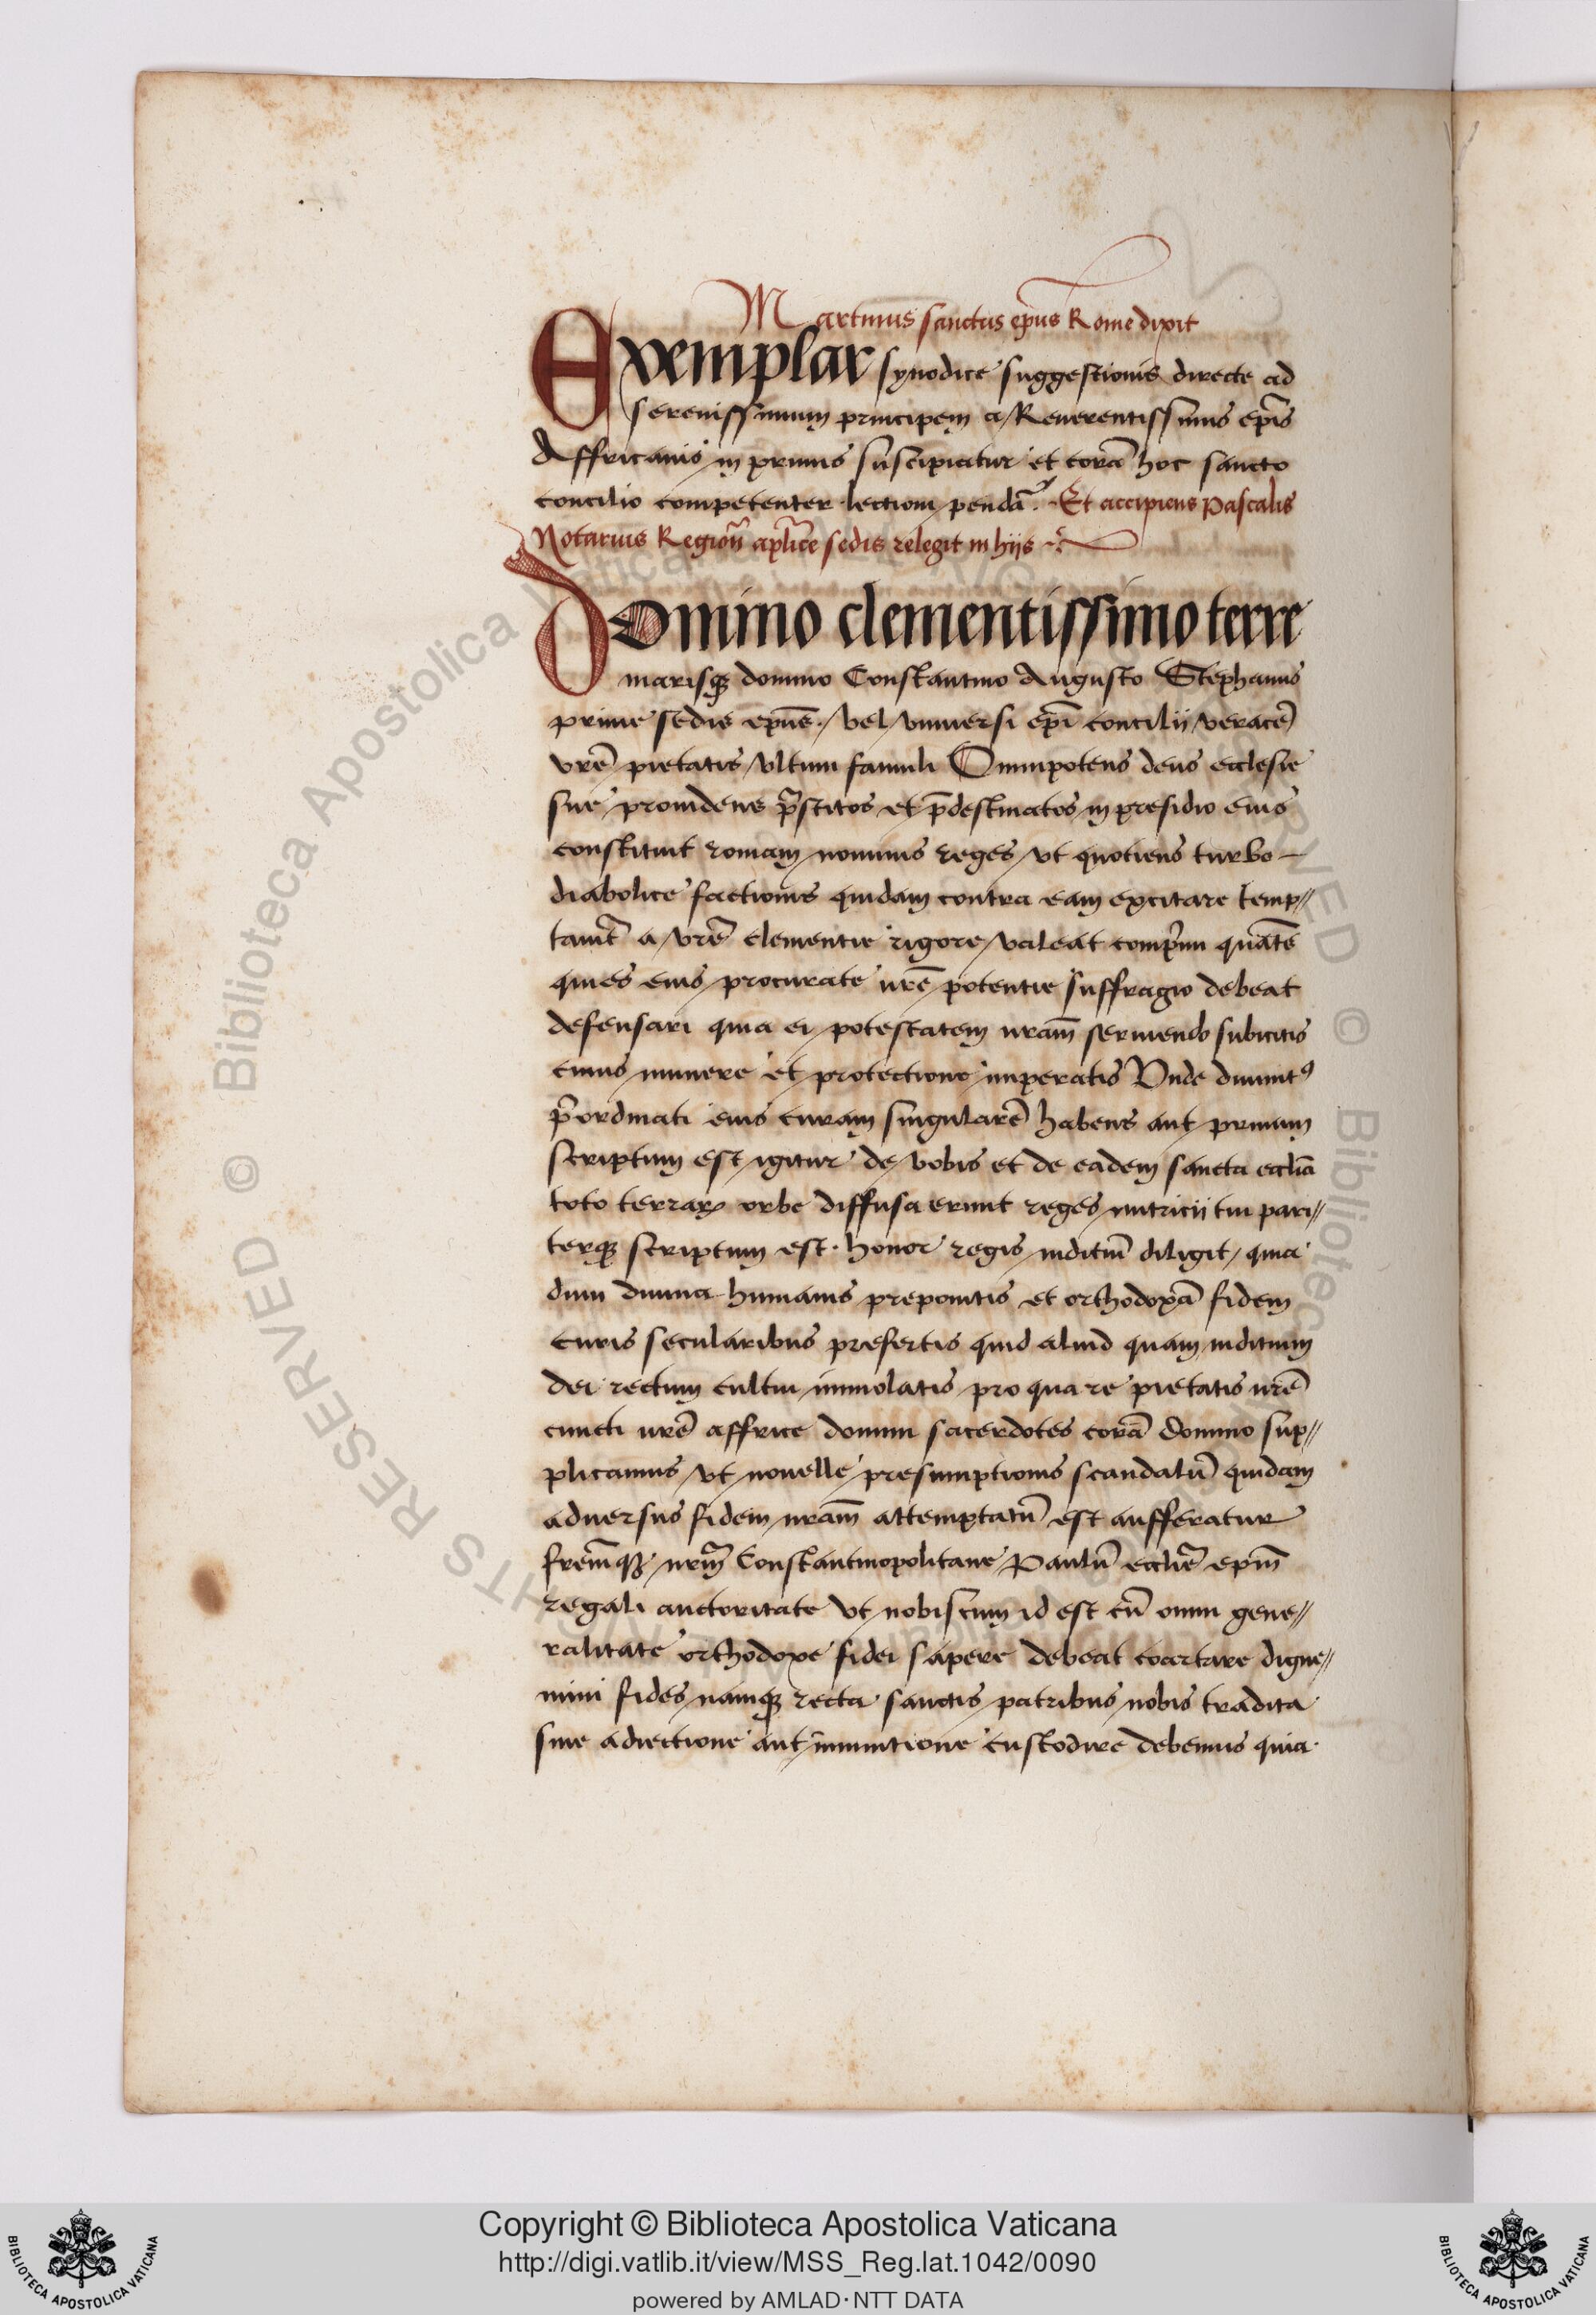 Martinus sanctus ep̄us Rome dixit
Exemplar synodice suggestionis directe ad
serenissimum principem a Reuerentissimis ep̄is
Affricanis in primis suscipiatur et corā hoc sancto
concilio competenter lectioni pendā. Et accipiens Pascalis
Notarius Regionū ap̄lice sedis relegit in hijs
Domino clementissimo terre
marisqꝫ domino Constantino Augusto Stephanus
prime sedis ep̄us. vel vniuersi ep̄i concilij
vrē pietatis vltimi famuli Omnipotens deus ecclesie
sue prouidens p̄stitos et p̄destinatos in presidio eius
constituit romani nominis reges vt quotiens turbo
diabolice factionis quidam contra eam excitare temp//
tauit a vrē clementie rigore valeat comp̄mi quaten̄
quies eius procurate vrē potentie suffragio debeat
defensari quia ei potestatem vram̄ seruiendo subicitis
cuius munere et protectione imperatis Vnde diuinitꝰ
p̄ordinati eius curam singularē habens aut primum
scriptum est igitur de vobis et de eadem sancta eccl̄ia
toto terrarꝝ orbe diffusa erunt reges nutricij tui pari//
terqꝫ scriptum est. honor regis iuditiū diligit, quia
dum diuina humanis preponitis et orthodoxā fidem
curis secularibus prefertis quid aliud quam iuditium
dei rectum cultui immolatis pro qua re pietatis vrē
cuncti vrē affrice domini sacerdotes corā Domino sup//
plicamus vt nouelle presumptionis scandalū quidam
aduersus fidem nram̄ attemptatū est aufferatur
frem̄qꝫ nrm̄ Constantinopolitane Paulū eccl̄ie ep̄m
regali auctoritate vt nobiscum id est cū omni gene//
ralitate orthodoxe fidei sapere debeat coartare digne//
mini fides namqꝫ recta sanctis patribus nobis tradita
sine adiectione aut imminutione custodire debemus quia
© Biblioteca Apostolica Vaticana
RIGHTS RESERVED
Copyright © Biblioteca Apostolica Vaticana
http://digi.vatlib.it/view/MSS_Reg.lat.1042/0090
powered by AMLAD·NTT DATA
BIBLIOTECA APOSTOLICA VATICANA
BIBLIOTECA APOSTOLICA VATICANA